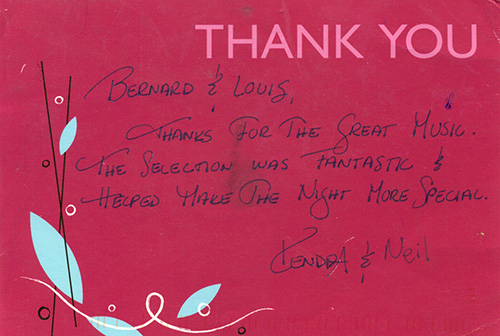 THANK YOU
BERNARD & LOUIS,
THANKS FOR THE GREAT MUSIC.
THE SELECTION WAS FANTASTIC &
HELPED MAKE THE NIGHT MORE SPECIAL.
KENDRA & Neil